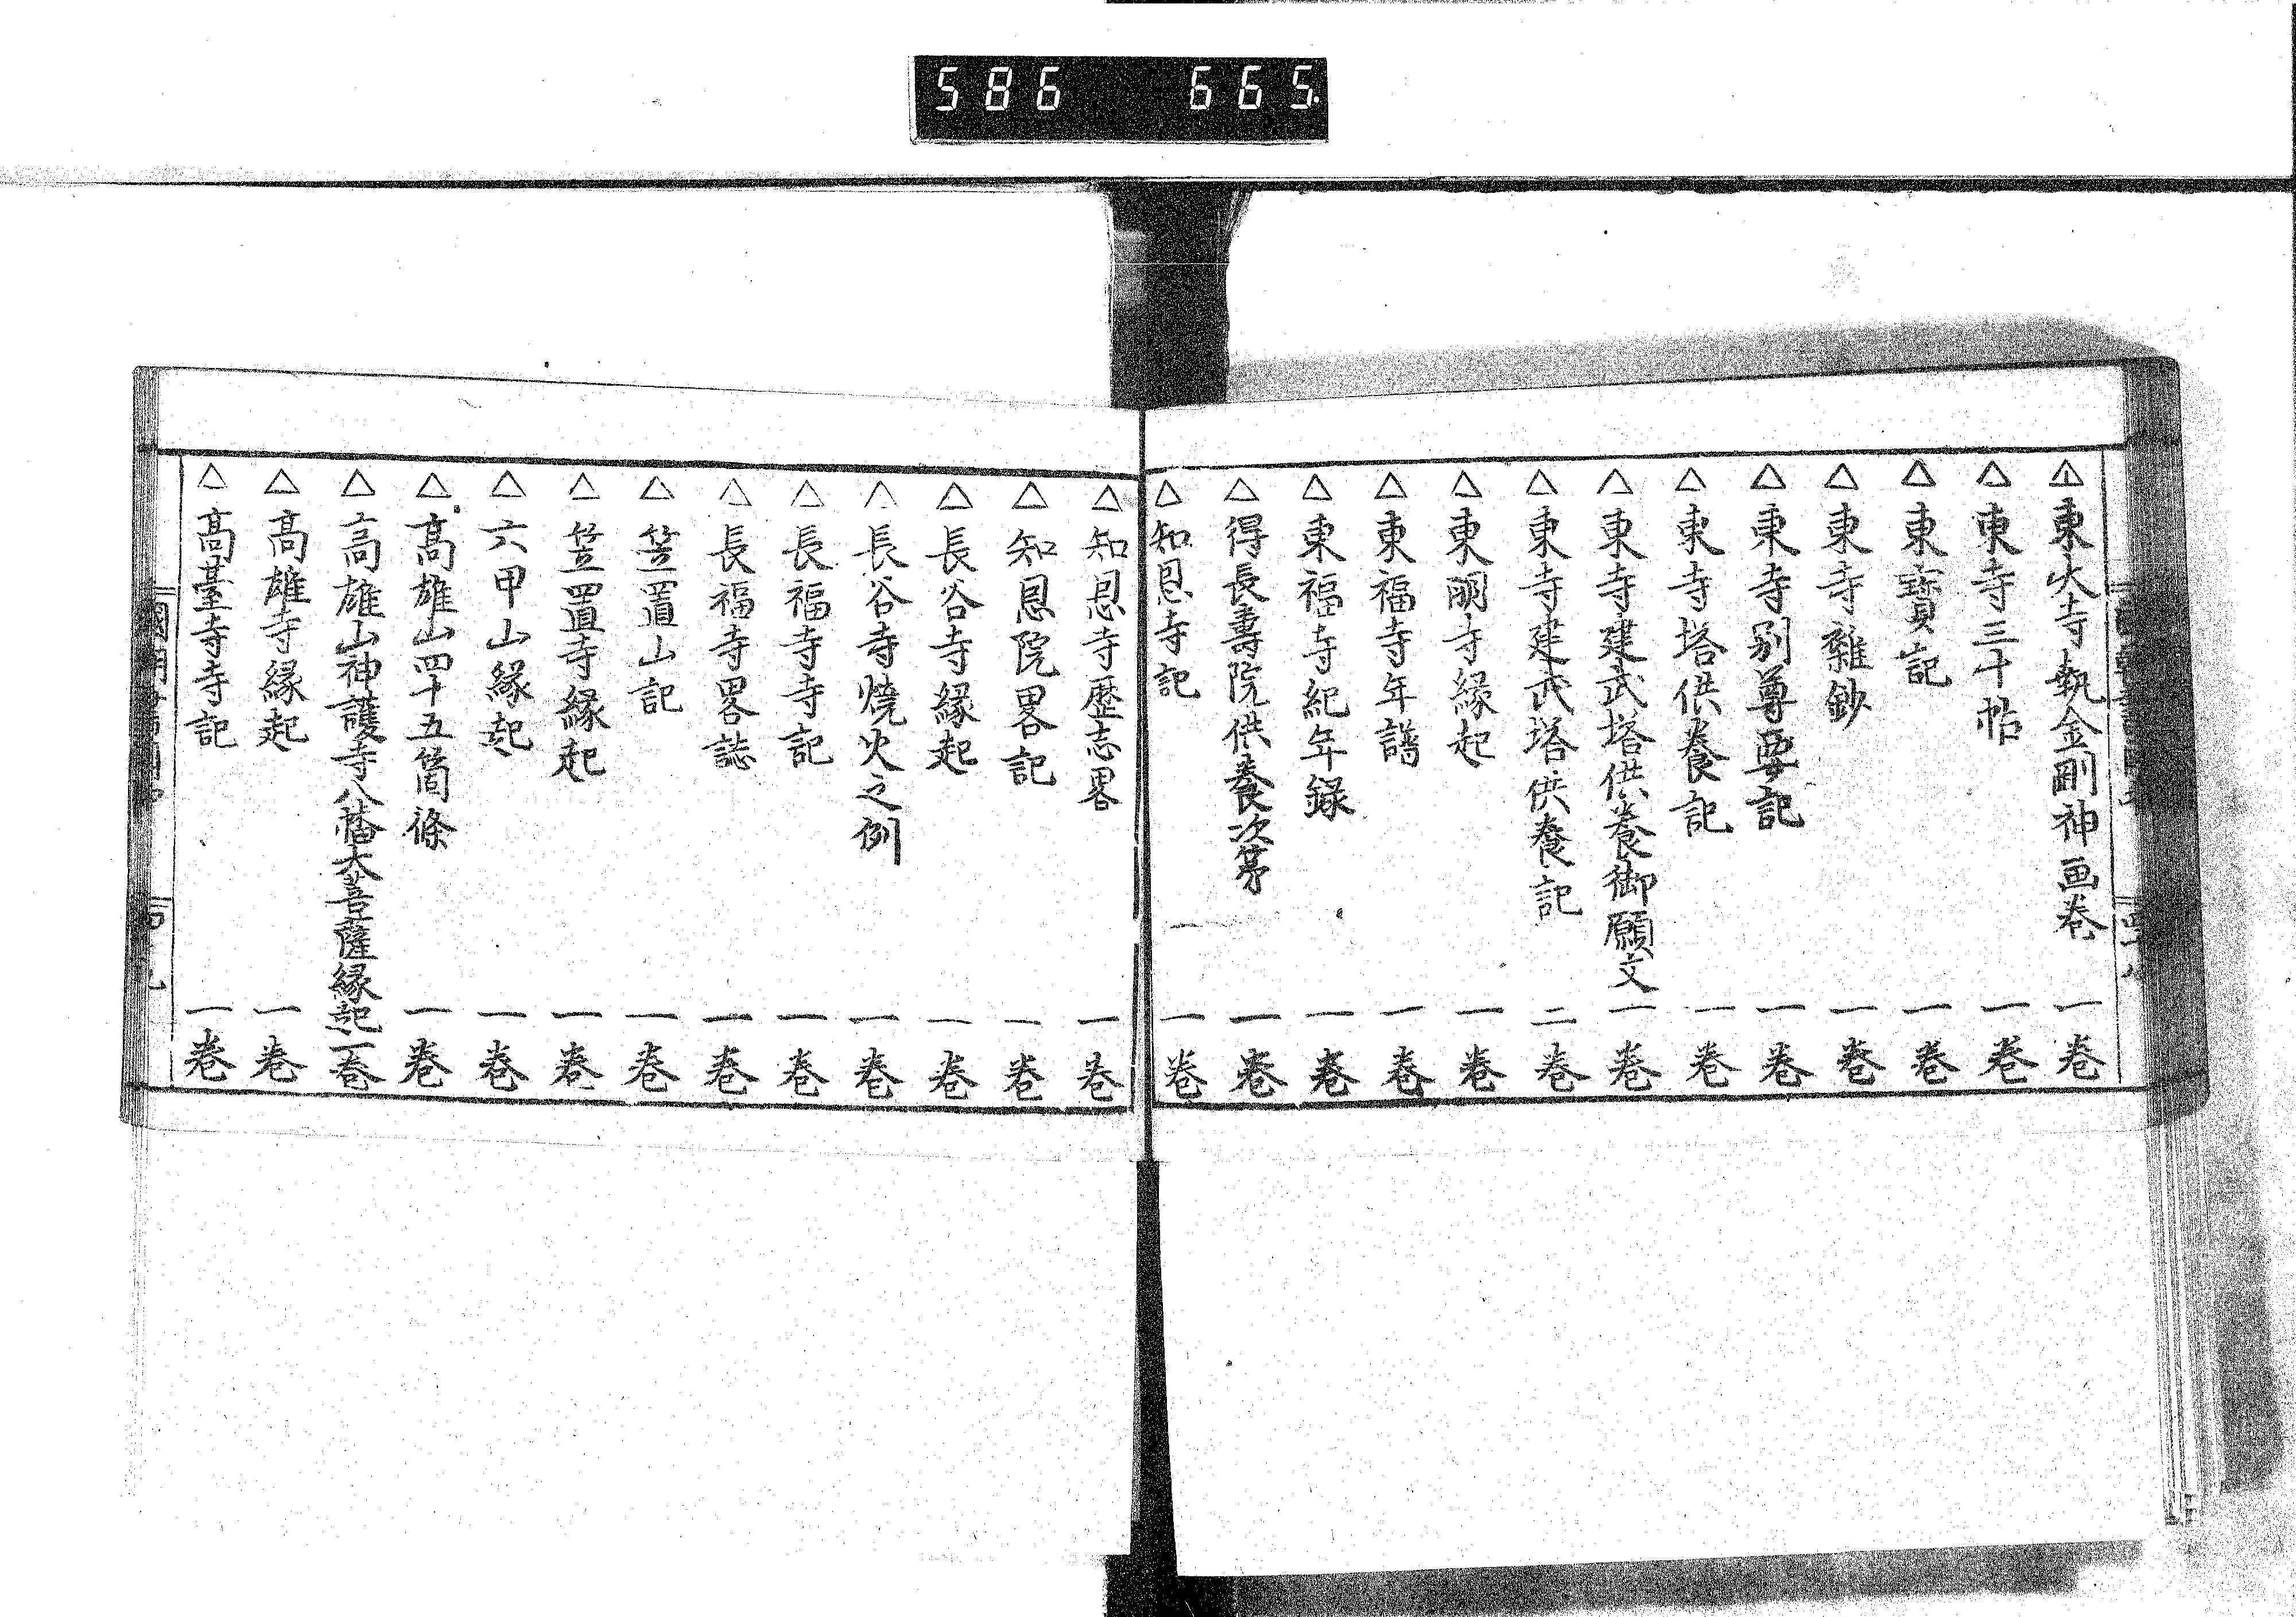 586 665.
△東大寺執金剛神画巻 一巻
△東寺三十帖 一巻
△東寳記 一巻
△東寺雜鈔 一巻
△東寺別尊要記 一巻
△東寺塔供養記 一巻
△東寺建武塔供養御願文 一巻
△東寺建武塔供養記 二巻
△東明寺縁起 一巻
△東福寺年譜 一巻
△東福寺紀年録 一巻
△得長壽院供養次第 一巻
△知恩寺記 一巻
△知恩寺歴志畧 一巻
△知恩院畧記 一巻
△長谷寺縁起 一巻
△長谷寺燒火之例 一巻
△長福寺寺記 一巻
△長福寺畧誌 一巻
△笠置山記 一巻
△笠置寺縁起 一巻
△六甲山縁起 一巻
△髙雄山四十五箇條 一巻
△髙雄山神護寺八幡大菩薩縁起 一巻
△髙雄寺縁起 一巻
△髙臺寺寺記 一巻